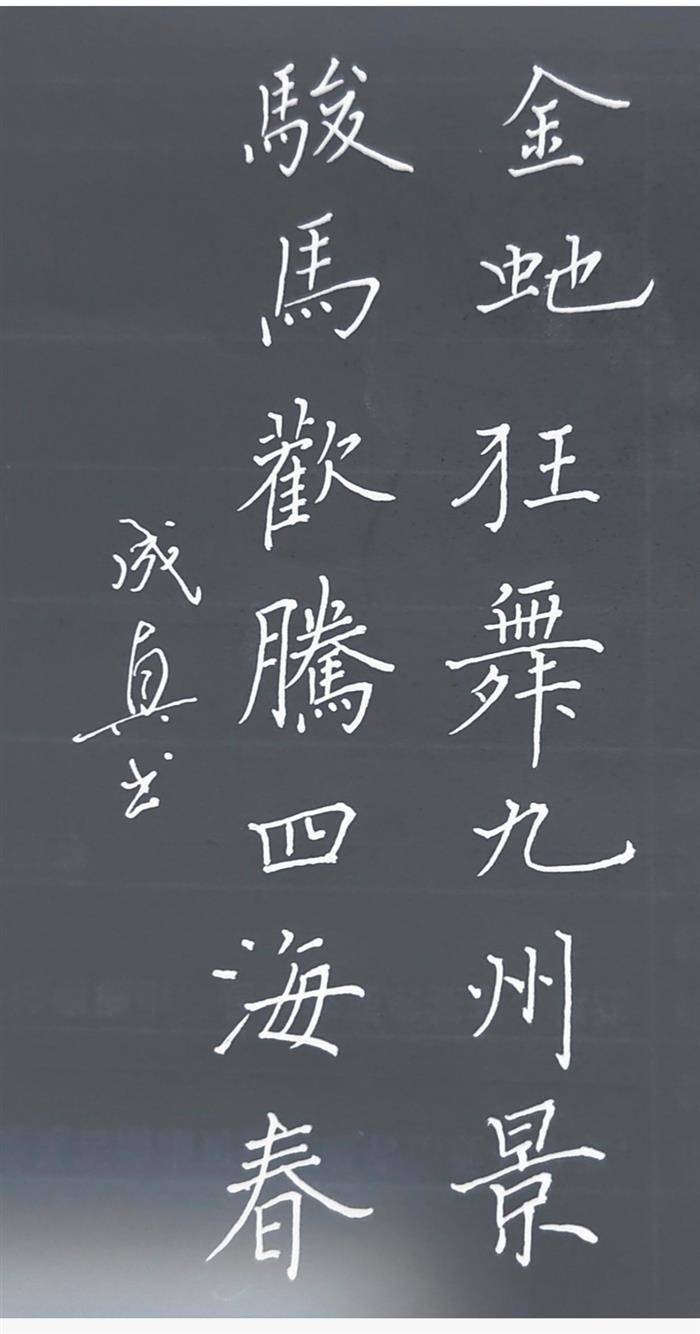 金虵狂舞九州景
駿馬歡騰四海春
成真书